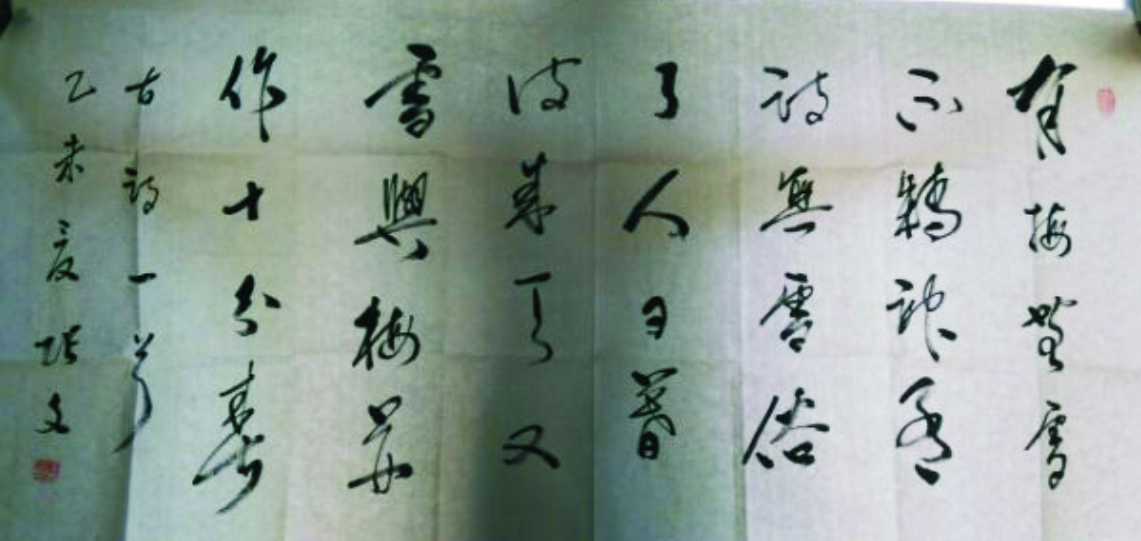 有梅無雪
不精神有
詩無雪俗
了人日暮
詩成天又
雪與梅并
作十分春
古詩一首
乙未夏 张文